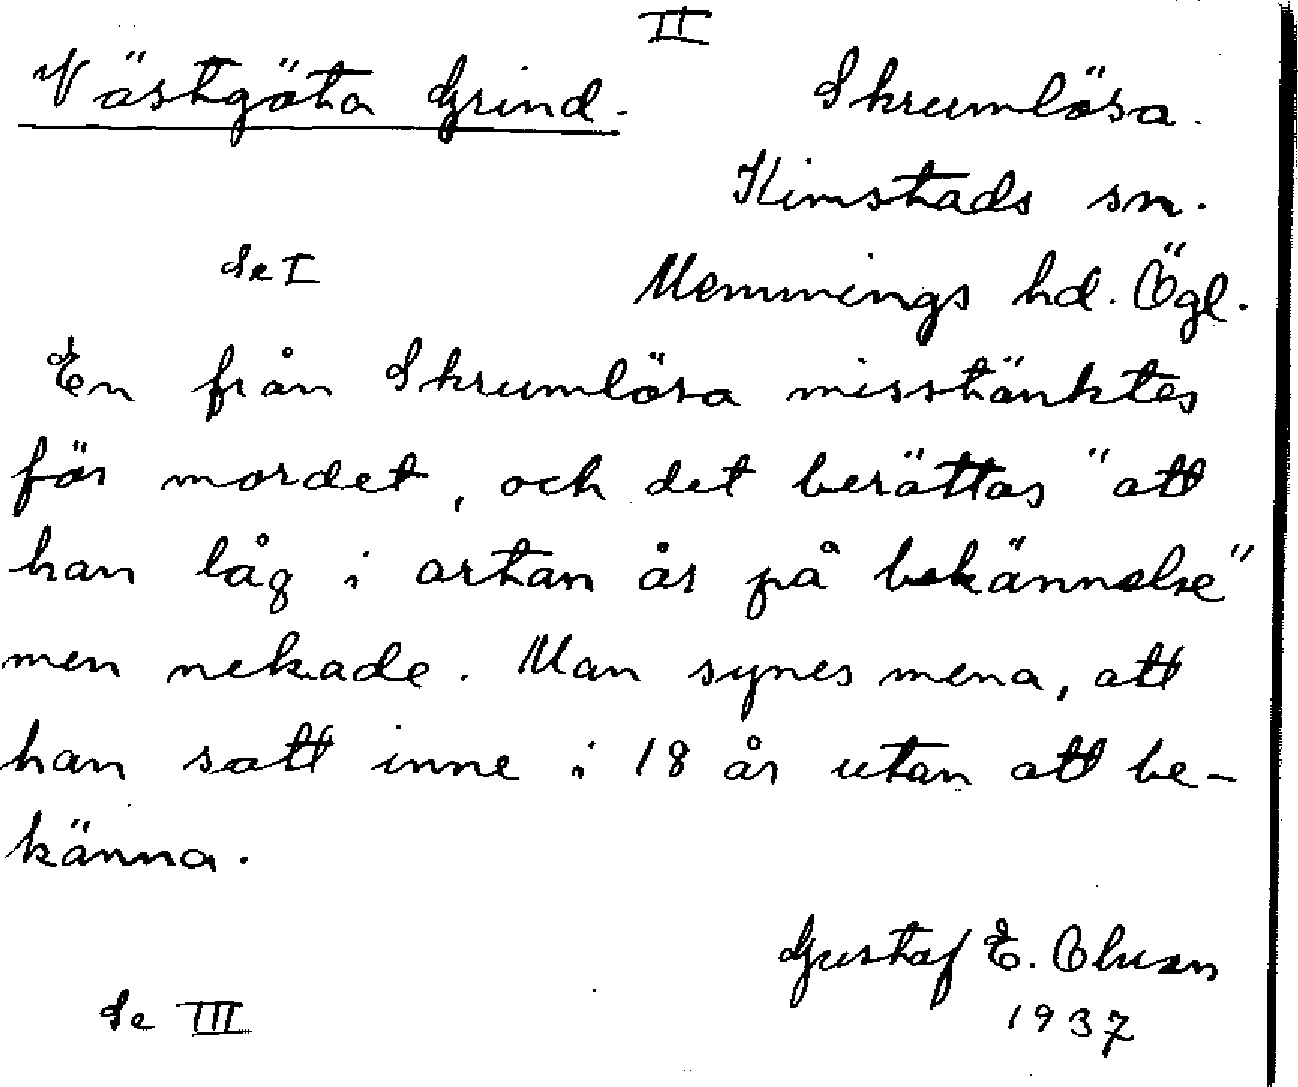 II
Västgöta Grind. Skrumlösa.
Kimstads sn.
Se I Memmings hd. Ögl.
En från Skrumlösa misstänktes
för mordet, och det berättas "att
han låg i arton år på bekännelse"
men nekade. Man synes mena, att
han satt inne i 18 år utan att be-
känna.
Gustaf E. Olsson
Se III 1937